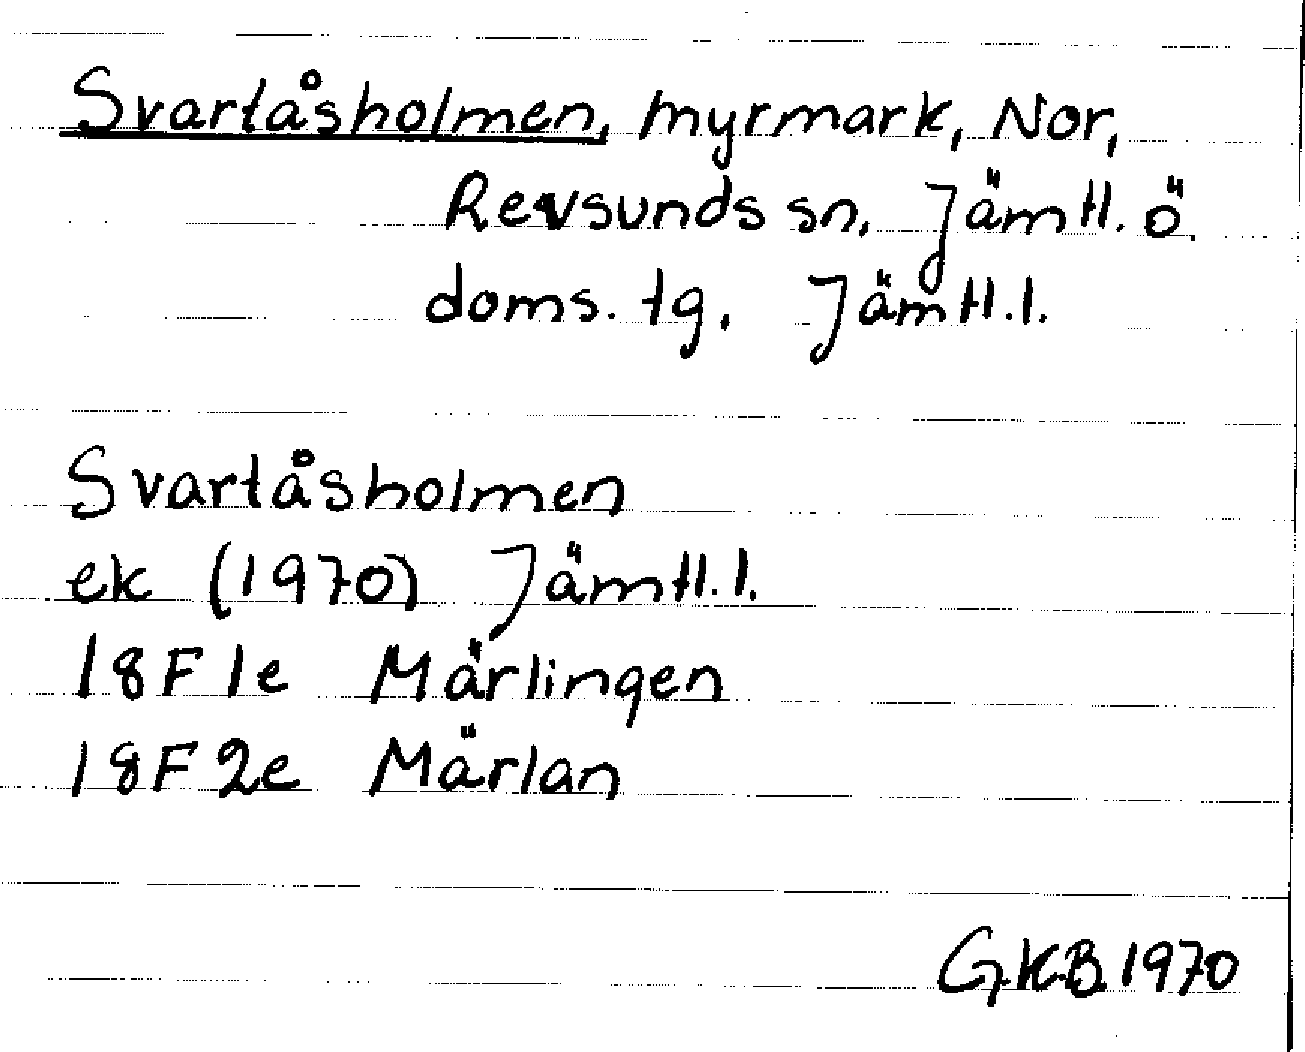 Svartåsholmen, myrmark, Nor,
Revsunds sn. Jämtl. ö.
doms. tg. Jämtl.l.
Svartåsholmen
ek (1970) Jämtl.l.
18F1e Märlingen
18F2e Märlan
G.K.B.1970